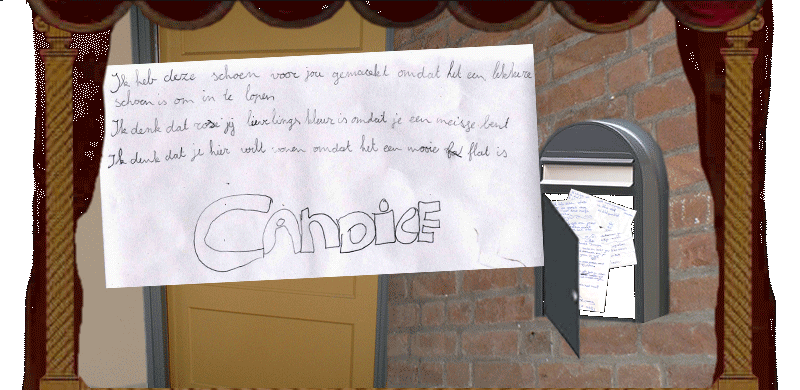 Ik heb deze schoen voor jou gemaakt omdat het een lekkere
schoen is om in te lopen
Ik denk dat rose jij lievelings kleur is omdat je een meisze bent
Ik denk dat je hier wilt wonen omdat het een mooie flat is
CANDICE